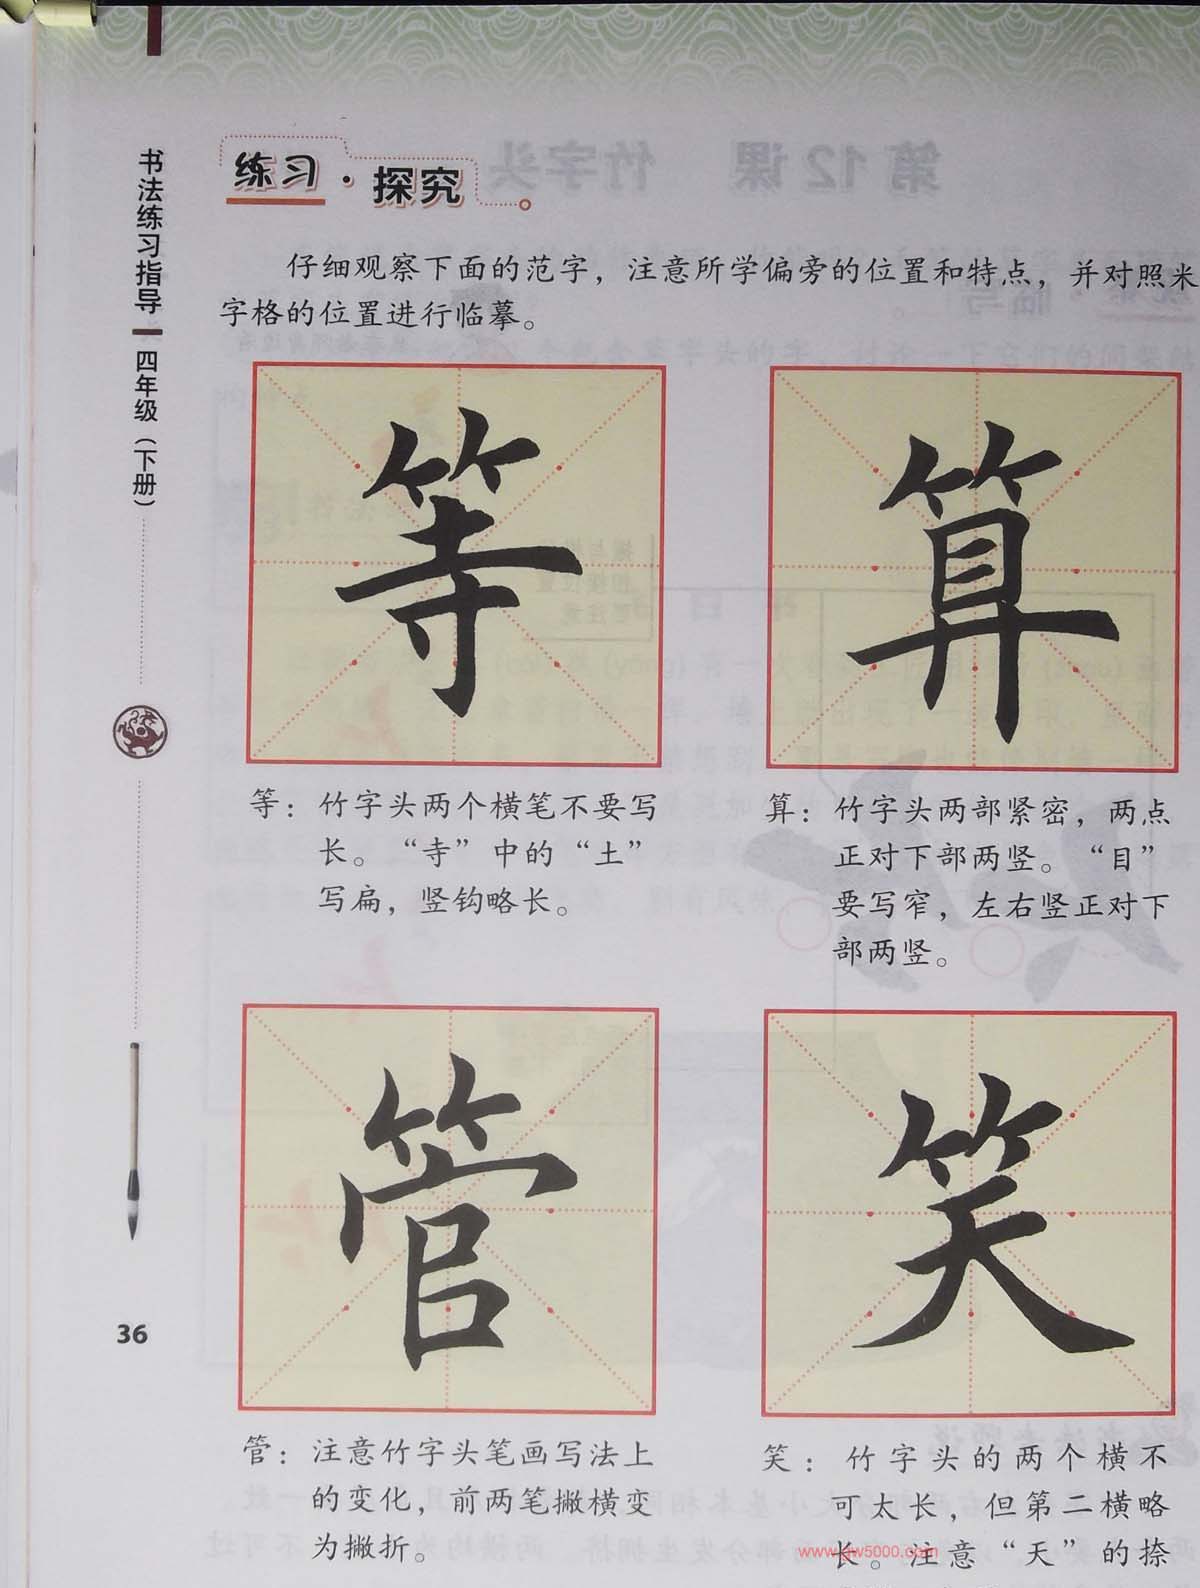 书法练习指导
四年级（下册）
36
练习·探究
仔细观察下面的范字，注意所学偏旁的位置和特点，并对照米
字格的位置进行临摹。
等
算
等：竹字头两个横笔不要写
长。“寺”中的“土”
写扁，竖钩略长。
算：竹字头两部紧密，两点
正对下部两竖。“目”
要写窄，左右竖正对下
部两竖。
管
笑
管：注意竹字头笔画写法上
的变化，前两笔撇横变
为撇折。
笑：竹字头的两个横不
可太长，但第二横略
长。注意“天”的捺
www.gw5000.com
第12课 竹字头